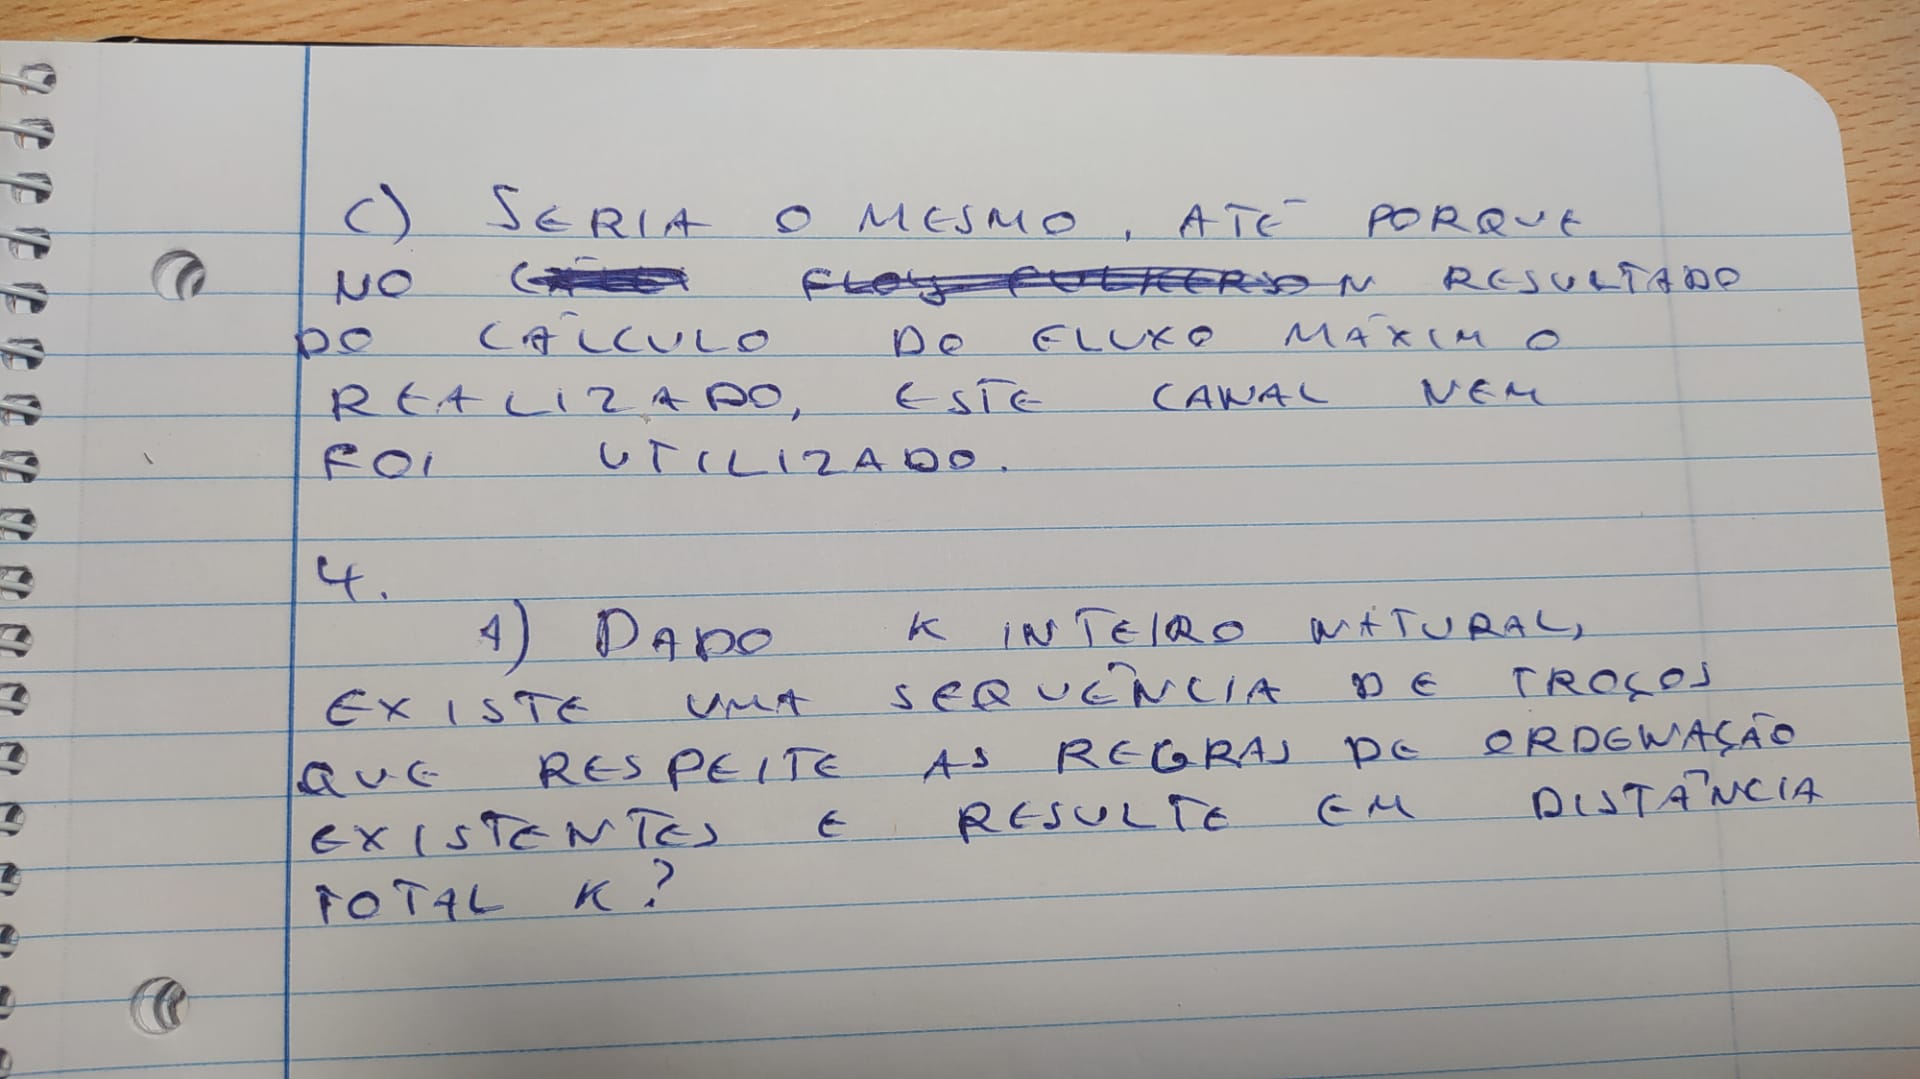 C) SERIA O MESMO, ATÉ PORQUE
NO RESULTADO
DO CÁLCULO DO FLUXO MÁXIMO
REALIZADO, ESTE CANAL NEM
FOI UTILIZADO.
4.
A) DADO K INTEIRO NATURAL,
EXISTE UMA SEQUÊNCIA DE TROÇOS
QUE RESPEITE AS REGRAS DE ORDENAÇÃO
EXISTENTES E RESULTE EM DISTÂNCIA
TOTAL K?